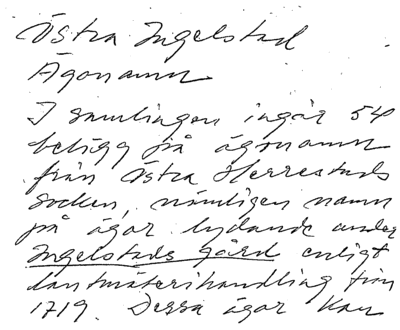 Östra Ingelstad
Ägonamn
I samlingen ingår 54
belägg på ägonamn
från Östra Herrestads
socken, nämligen namn
på ägor lydande under
Ingelstads gård enligt
lantmäterihandling från
1719. Dessa ägor kan